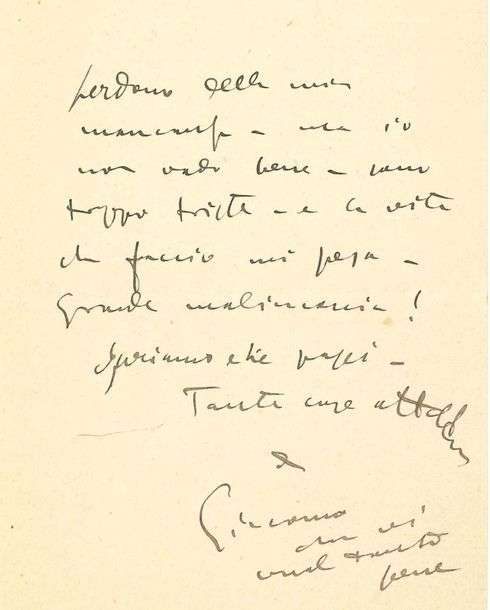 perdono della mia
mancanza – ma io
non vado bene – sono
troppo triste – e la vita
che faccio mi pesa –
Grande malinconia!
Speriamo che passi –
Tante cose a
Giacomo
che vi
vuol tanto
bene